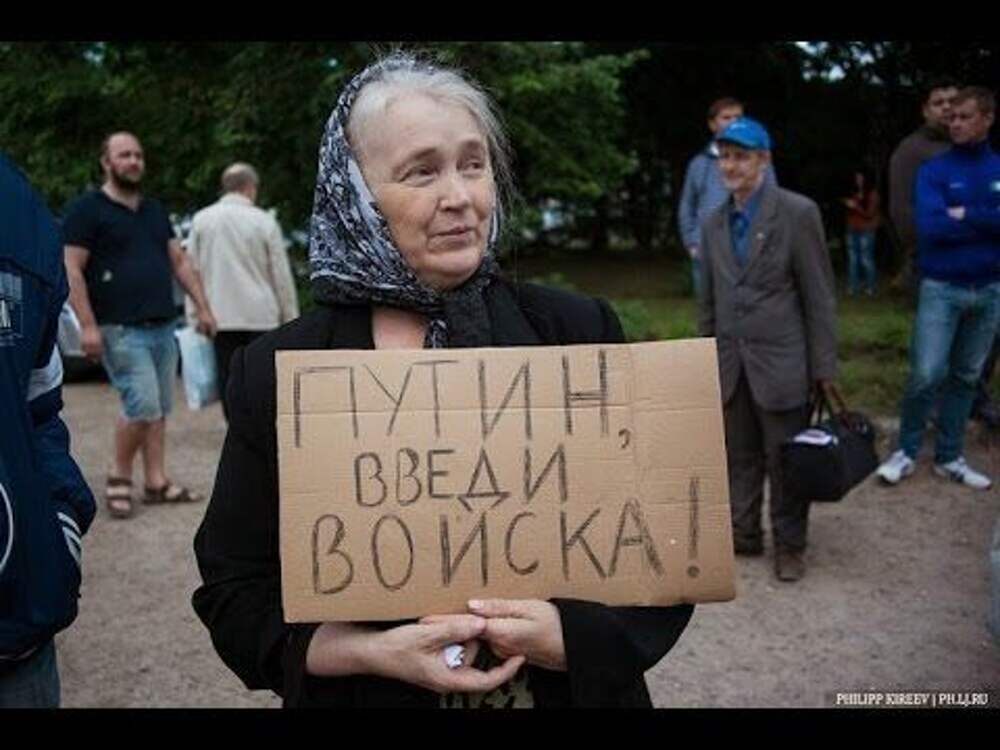 ПУТИН,
ВВЕДИ
ВОЙСКА!
PHILIPP KIREEV | PH.LJ.RU